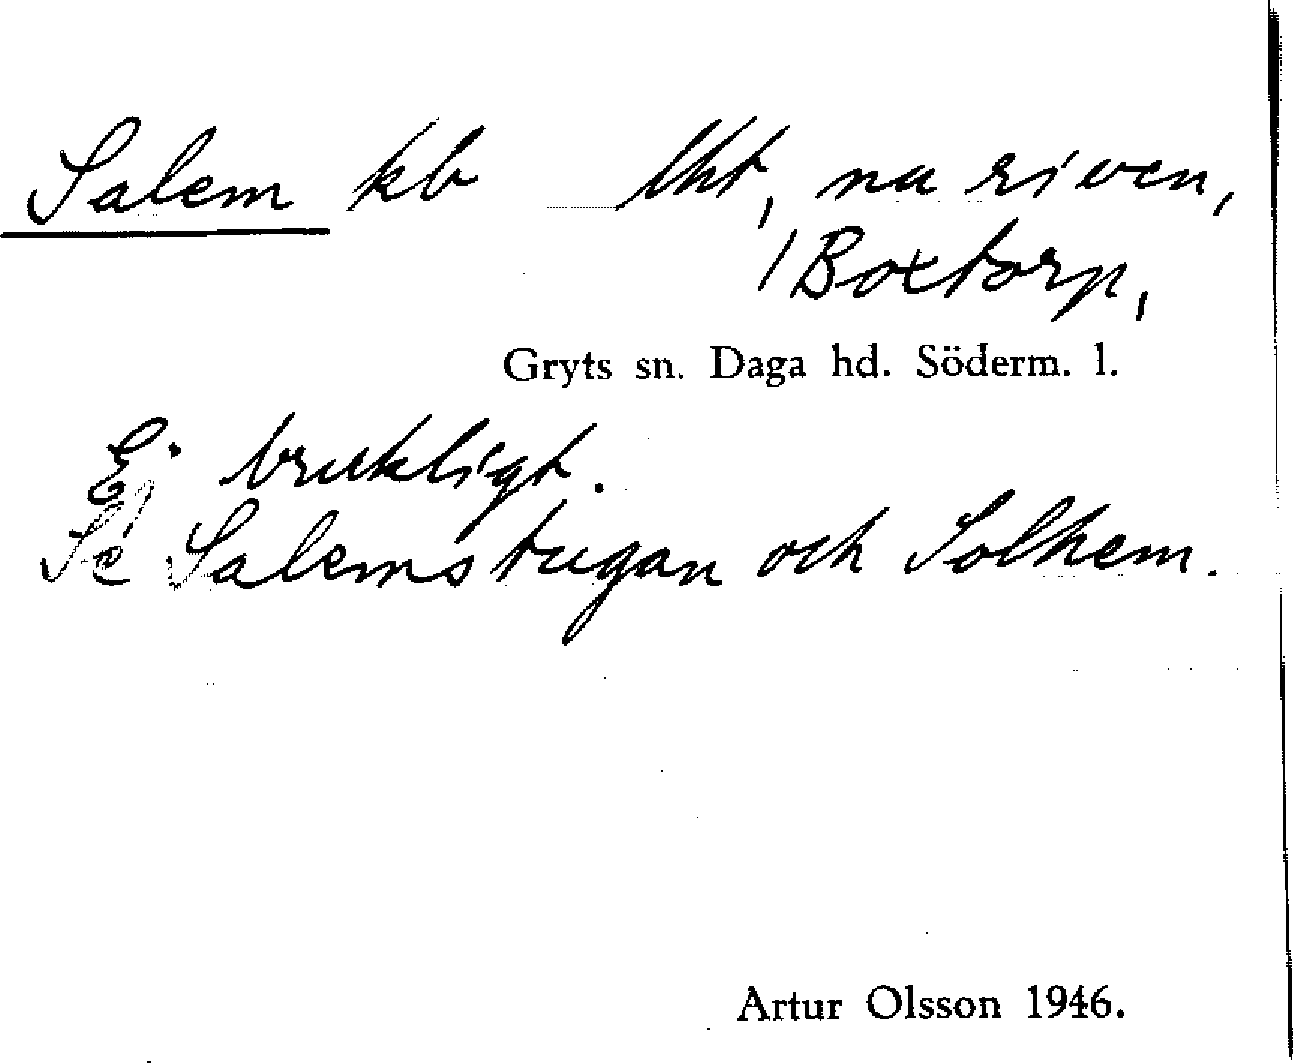 Salem kb lht, nu riven,
/ Boxtorp,
Gryts sn. Daga hd. Söderm. l.
Ej brukligt.
Se Salemstugan och Solhem.
Artur Olsson 1946.